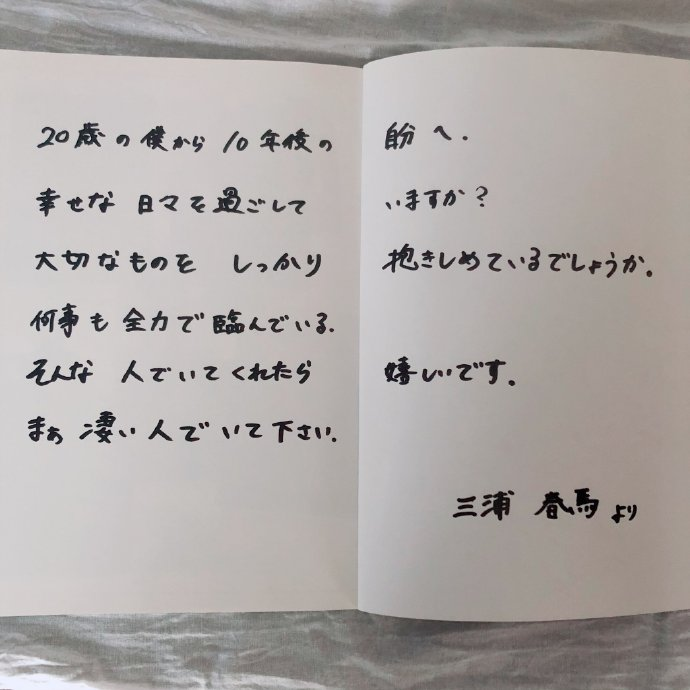 20歳の僕から10年後の自分へ.
幸せな日々を過ごしていますか?
大切なものをしっかり抱きしめているでしょうか.
何事も全力で臨んでいる.
そんな人でいてくれたら嬉しいです.
まぁ凄い人でいて下さい.
三浦春馬より